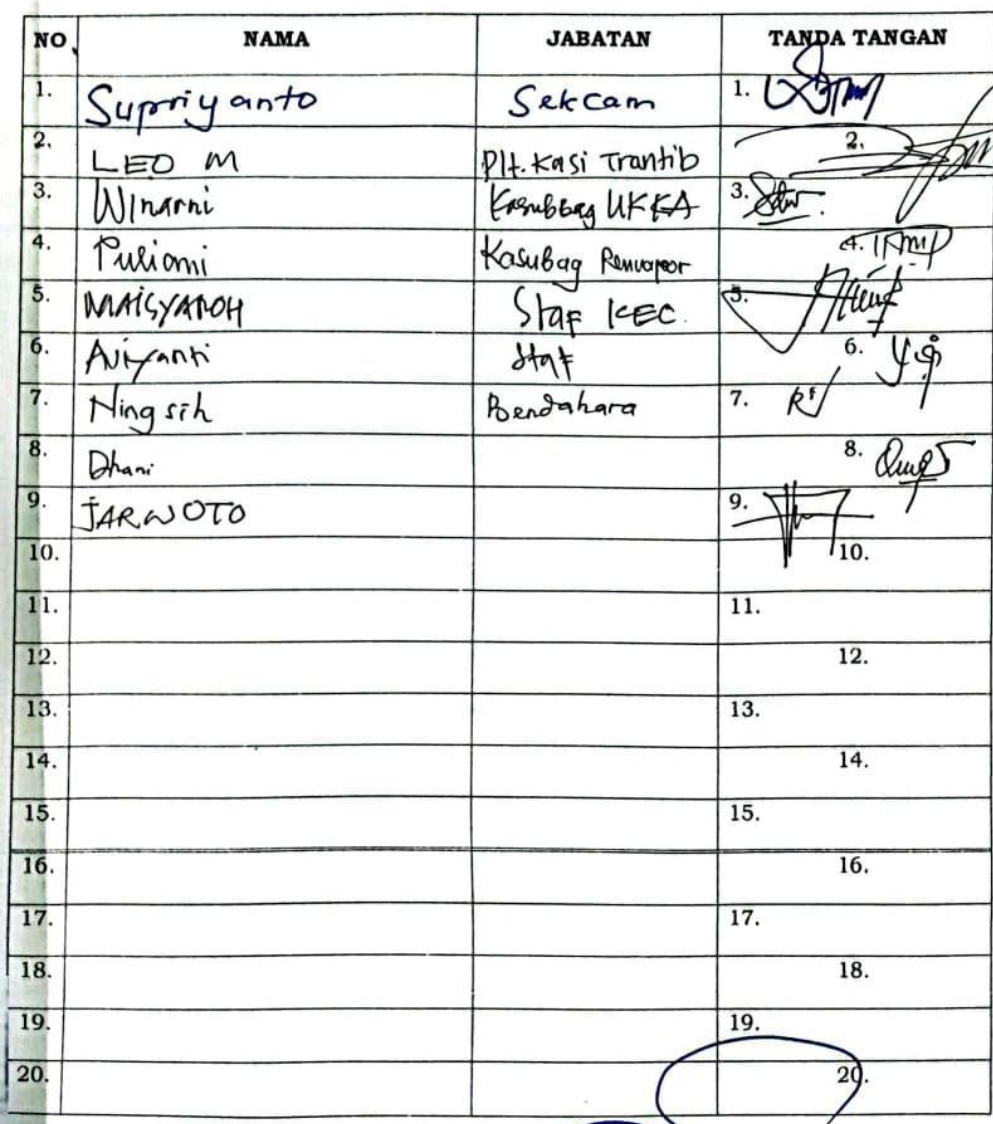 NO NAMA JABATAN TANDA TANGAN
1. Supriyanto Sekcam 1.
2. LEO M Plt. Kasi Trantib 2.
3. Winarni Kasubbag UKKA 3.
4. Puliami Kasubag 4.
5. MAISYAROH Staf KEC. 5.
6. Aviyanti Staf 6.
7. Ningsih Bendahara 7.
8. Dhani 8.
9. JARWOTO 9.
10. 10.
11. 11.
12. 12.
13. 13.
14. 14.
15. 15.
16. 16.
17. 17.
18. 18.
19. 19.
20. 20.